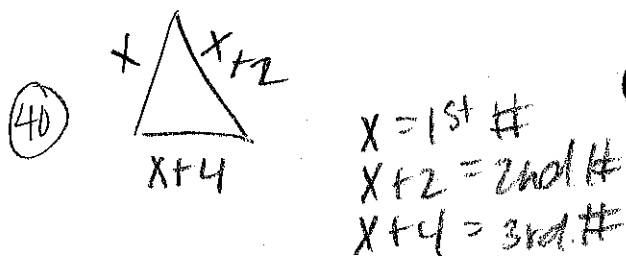 40
x
x+2
x+4
x = 1st #
x+2 = 2nd #
x+4 = 3rd #